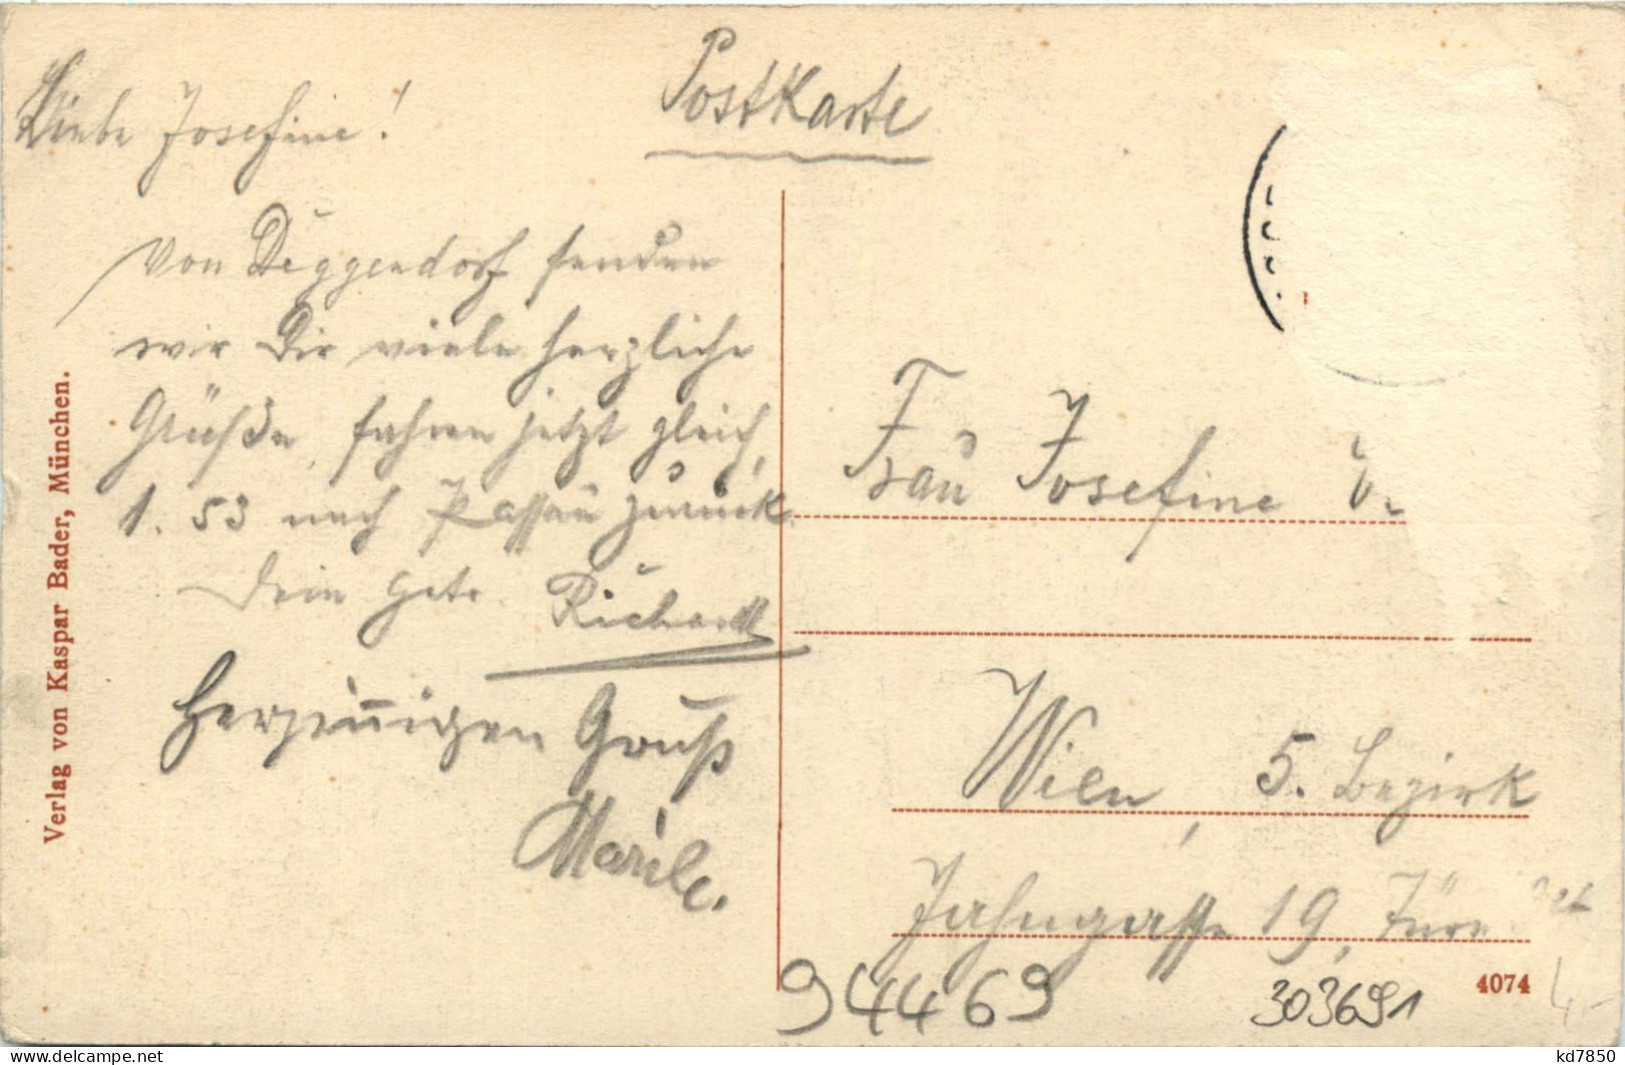 Postkarte
Liebe Josefine!
Von Deggendorf senden
wir Dir viele herzliche
Grüße, fahren jetzt gleich,
1.53 nach Passau zurück.
Dein getr. Richard
Herzinnigen Gruß
Marile.
Verlag von Kaspar Bader, München.
Frau Josefine
Wien, 5. Bezirk
Jahngasse 19,
4074
94469
303691
4.-
www.delcampe.net
kd7850